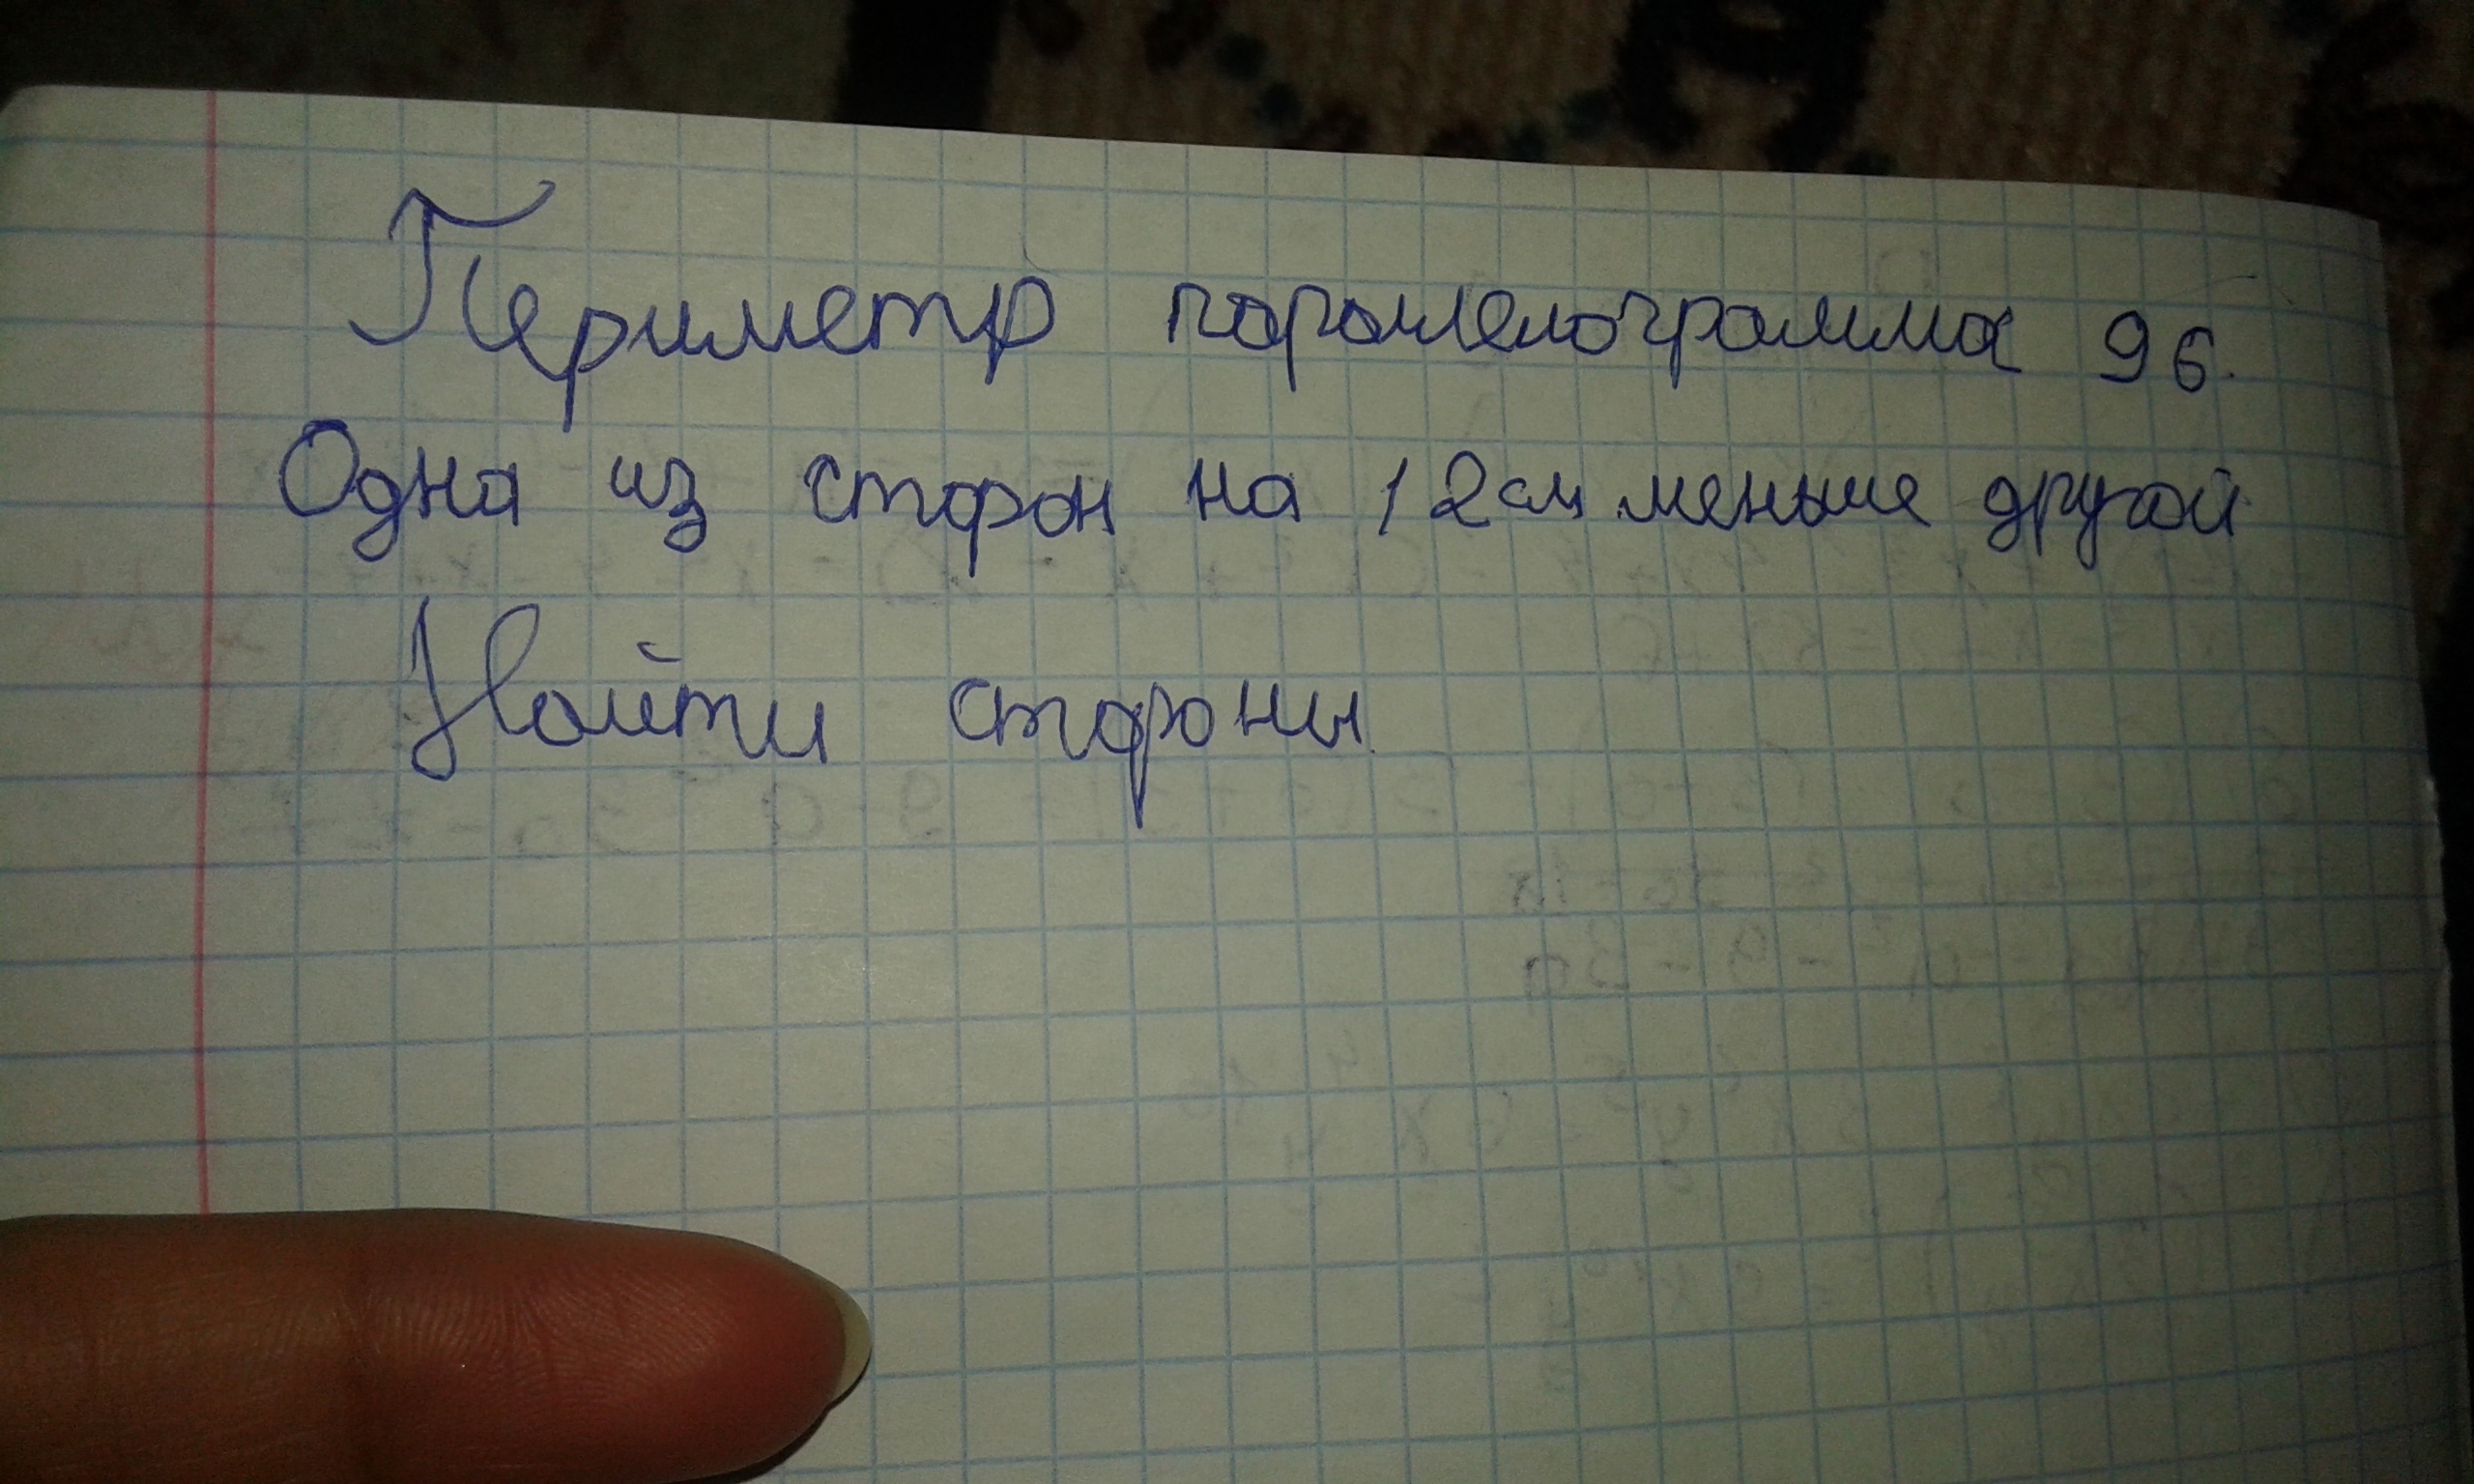 Периметр параллелограмма 96.
Одна из сторон на 12см меньше другой
Найти стороны.